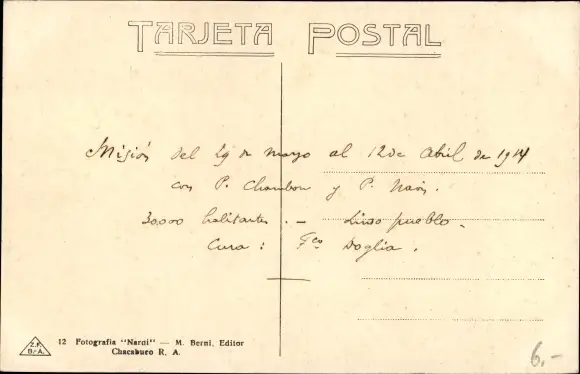 TARJETA POSTAL
Misión del 29 de mayo al 12 de Abril de 1914
con P. Chambon y P.
30.000 habitantes. — Lindo pueblo.
Cura: Fco Doglia.
Z.F.
B.-A.
12 Fotografia "Naroi" — M. Berni, Editor
Chacabuco R. A.
6,-